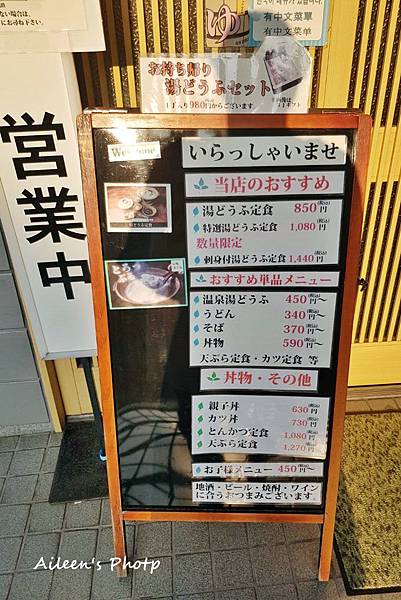 ない場合は、
にお尋ね下さい。
ゆ
有中文菜單
有中文菜单
お持ち帰り
湯どうふセット
1丁入り980円からございます
営業中
Welcome
いらっしゃいませ
当店のおすすめ
湯どうふ定食 850円(税込)
特選湯どうふ定食 1,080円(税込)
数量限定
刺身付湯どうふ定食 1,440円(税込)
おすすめ単品メニュー
温泉湯どうふ 450円(税込)～
うどん 340円(税込)～
そば 370円(税込)～
丼物 590円(税込)～
天ぷら定食・カツ定食 等
丼物・その他
親子丼 630円(税込)
カツ丼 730円(税込)
とんかつ定食 1,080円(税込)
天ぷら定食 1,270円(税込)
お子様メニュー 450円(税込)～
地酒・ビール・焼酎・ワイン
に合うおつまみございます
Aileen's Photp